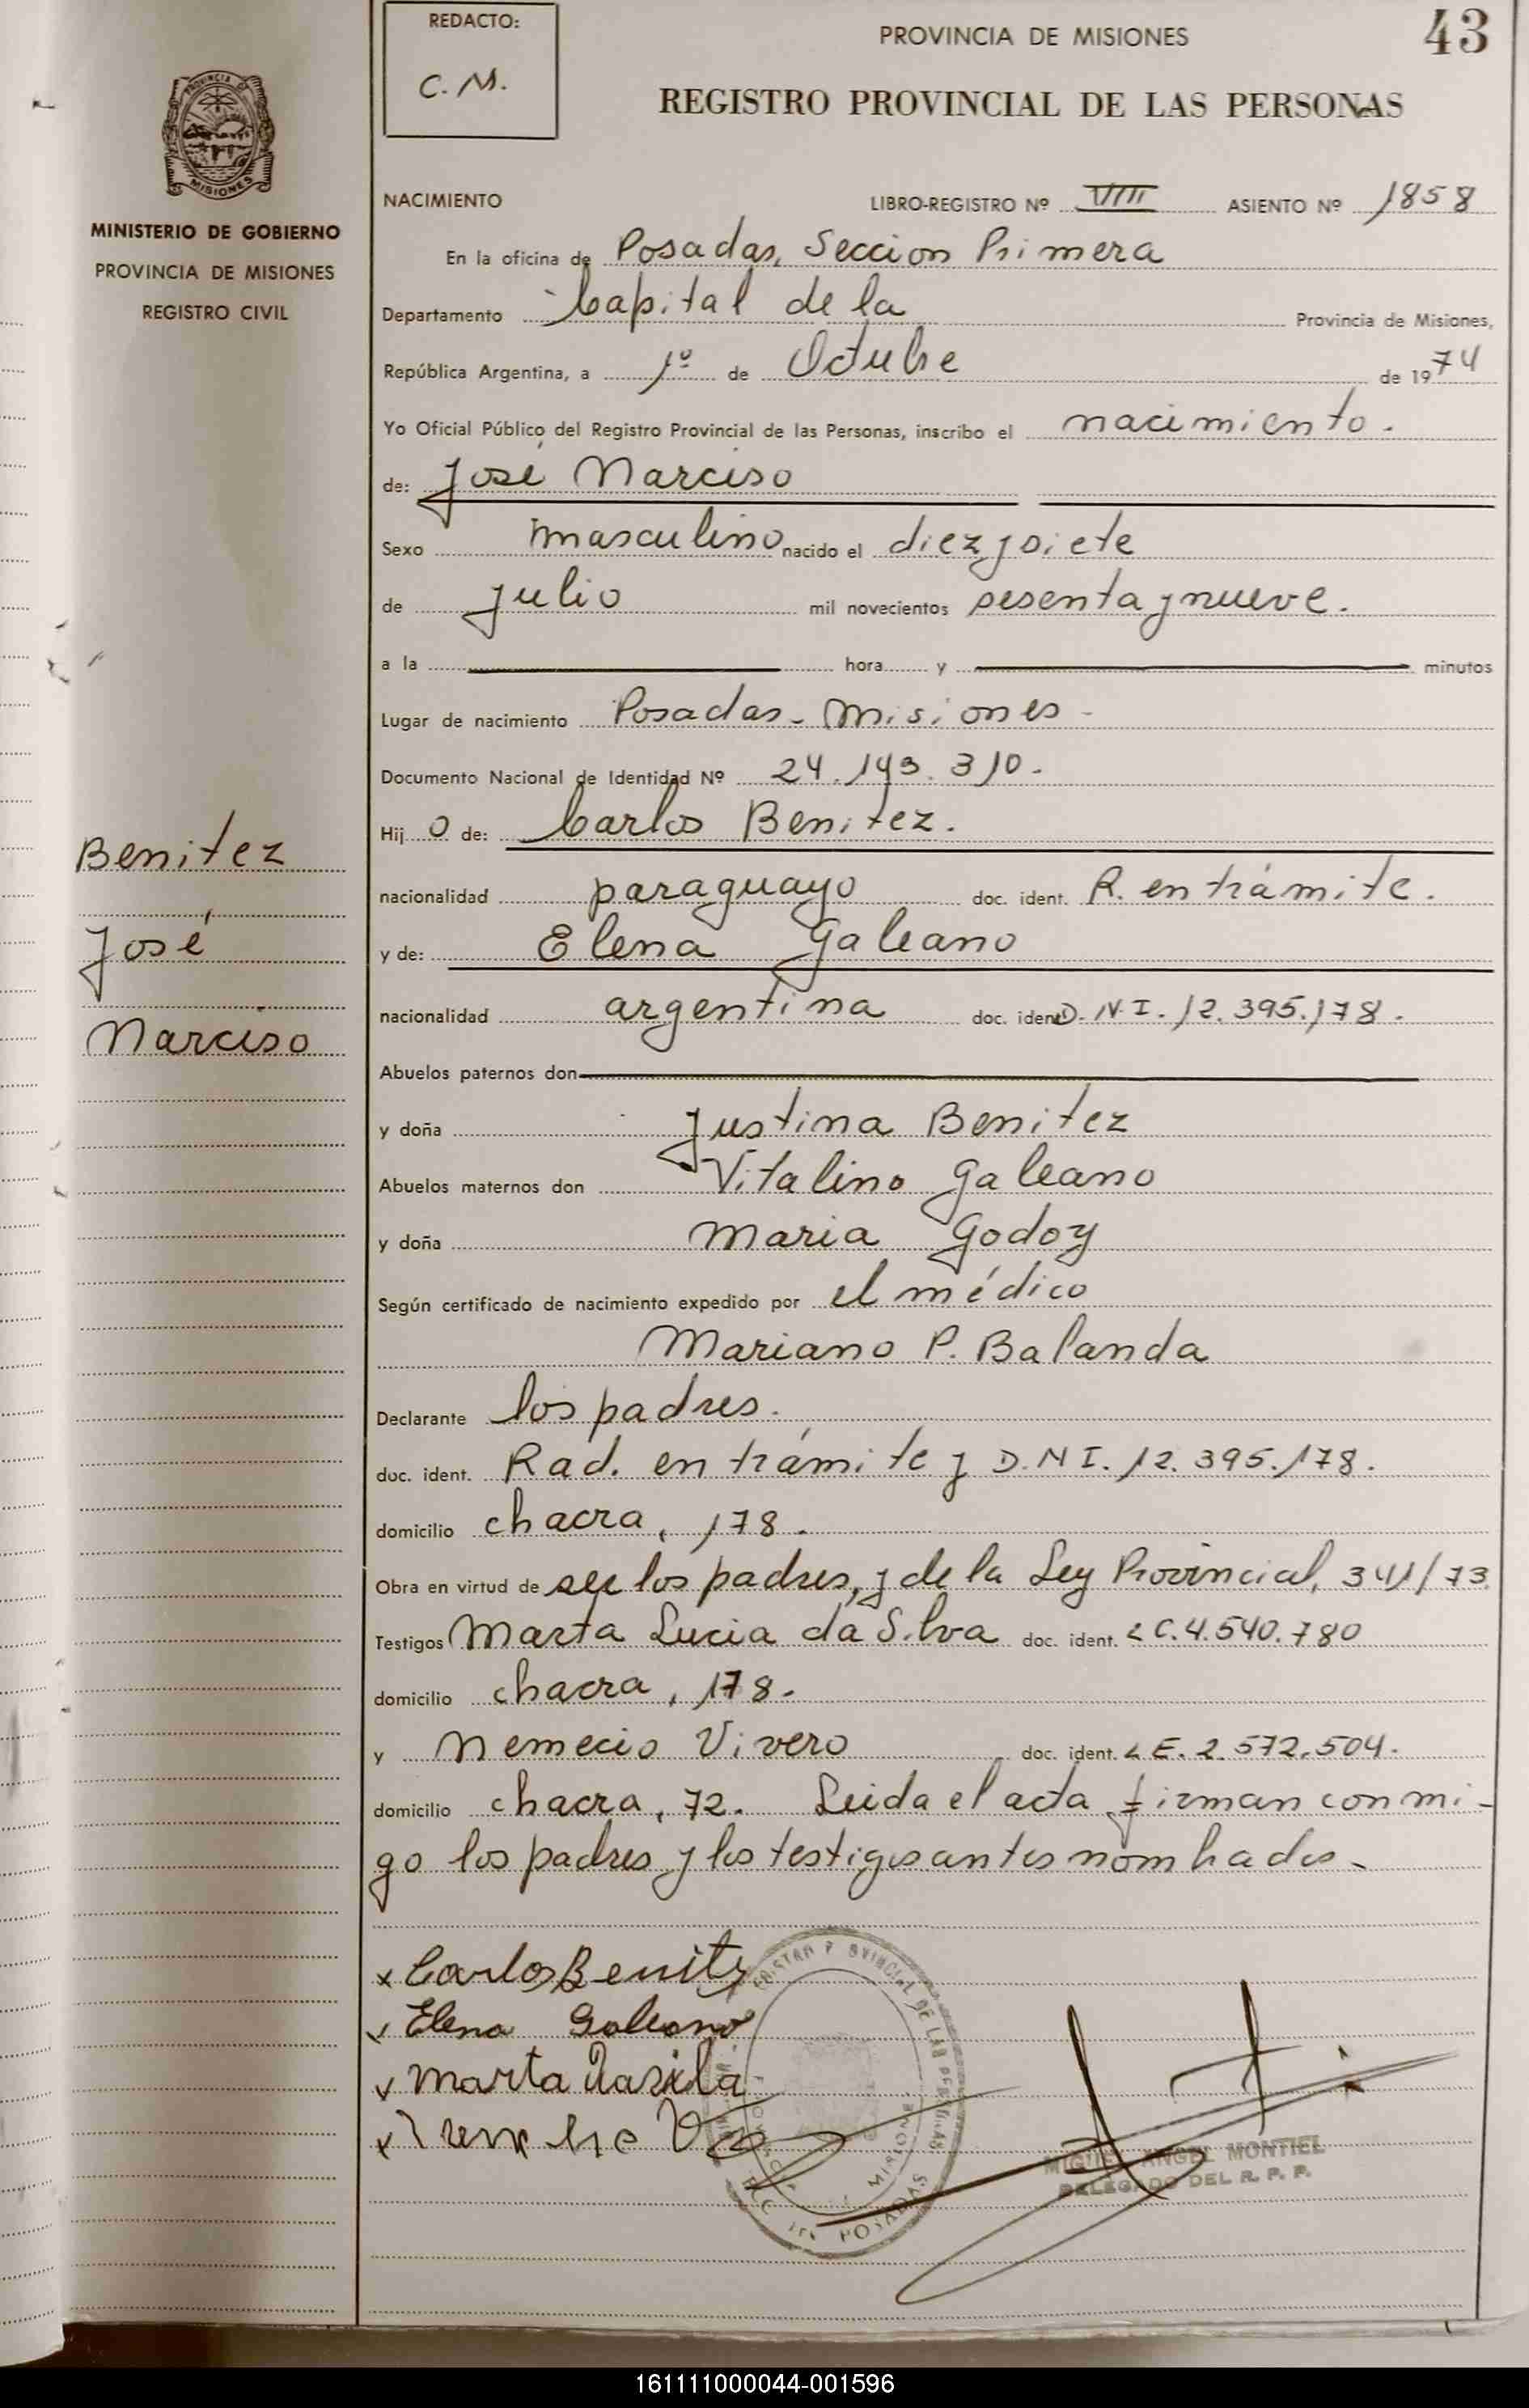 REDACTO:
C. M.
PROVINCIA DE MISIONES
43
REGISTRO PROVINCIAL DE LAS PERSONAS
PROVINCIA DE
MISIONES
MINISTERIO DE GOBIERNO
PROVINCIA DE MISIONES
REGISTRO CIVIL
NACIMIENTO LIBRO-REGISTRO Nº VIII ASIENTO Nº 1858
En la oficina de Posadas, Seccion Primera
Departamento Capital de la Provincia de Misiones,
República Argentina, a 1º de Octubre de 1974
Yo Oficial Público del Registro Provincial de las Personas, inscribo el nacimiento.
de: José Narciso
Sexo masculino nacido el diez y siete
de Julio mil novecientos sesenta y nueve.
a la hora y minutos
Lugar de nacimiento Posadas - Misiones -
Documento Nacional de Identidad Nº 24.143.310.
Hijo de: Carlos Benitez.
Benitez
nacionalidad paraguayo doc. ident. R. en trámite.
José
y de: Elena Galeano
nacionalidad argentina doc. ident. D.N.I. 12.395.178.
Narciso
Abuelos paternos don
y doña Justina Benitez
Abuelos maternos don Vitalino Galeano
y doña Maria Godoy
Según certificado de nacimiento expedido por el médico
Mariano P. Balanda
Declarante los padres.
doc. ident. Rad. en trámite y D.N I. 12.395.178.
domicilio chacra, 178.
Obra en virtud de ser los padres, y de la Ley Provincial, 341/73.
Testigos Marta Lucia da Silva doc. ident. LC.4.540.780
domicilio chacra, 178.
y Nemecio Vivero doc. ident. LE. 2.572.504.
domicilio chacra, 72. Leida el acta firman conmi-
go los padres y los testigos antes nombrados.
x Carlos Benitez
Elena Galeano
Marta dasilva
MIGUEL ANGEL MONTIEL
DELEGADO DEL R. P. P.
161111000044-001596